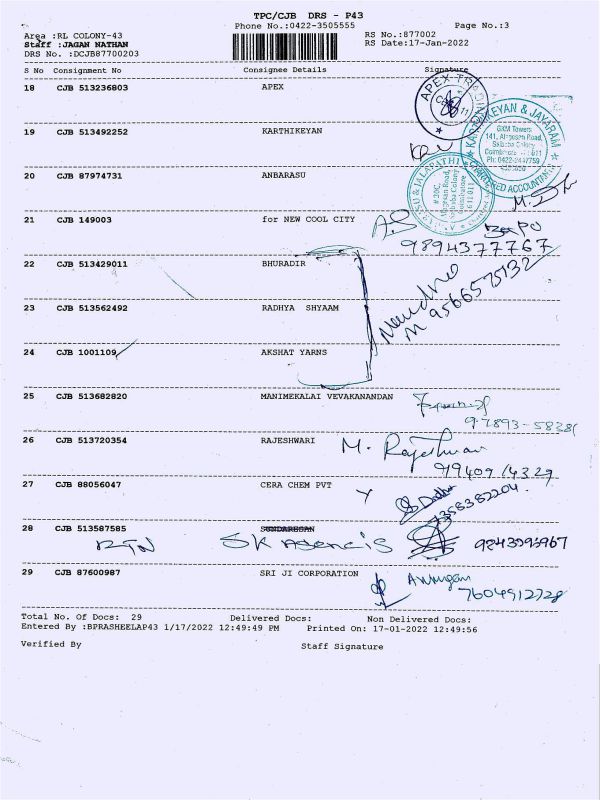 TPC/CJB DRS - P43
Phone No.:0422-3505555 Page No.:3
Area :RL COLONY-43 RS No.:877002
Staff :JAGAN NATHAN RS Date:17-Jan-2022
DRS No. :DCJB87700203
S No Consignment No Consignee Details Signature
18 CJB 513236803 APEX
APEX TRADING
19 CJB 513492252 KARTHIKEYAN
KARTHIKEYAN & JAYARAM
GKM Towers
141, Alagesan Road,
Saibaba Colony
Ph: 0422-2447759
CHARTERED ACCOUNTANTS
20 CJB 87974731 ANBARASU
& JALAPATHI
Alagesan Road,
Saibaba Colony
Coimbatore
21 CJB 149003 for NEW COOL CITY
9894377767
22 CJB 513429011 BHURADIR
9566575132
23 CJB 513562492 RADHYA SHYAAM
24 CJB 1001109 AKSHAT YARNS
25 CJB 513682820 MANIMEKALAI VEVAKANANDAN
97893-58381
26 CJB 513720354 RAJESHWARI M. Rajeshwari
99409 14329
27 CJB 88056047 CERA CHEM PVT
7358382204
28 CJB 513587585 SUNDARESAN
RTN SK Agencis 9843293967
29 CJB 87600987 SRI JI CORPORATION
7604912728
Total No. Of Docs: 29 Delivered Docs: Non Delivered Docs:
Entered By :BPRASHEELAP43 1/17/2022 12:49:49 PM Printed On: 17-01-2022 12:49:56
Verified By Staff Signature